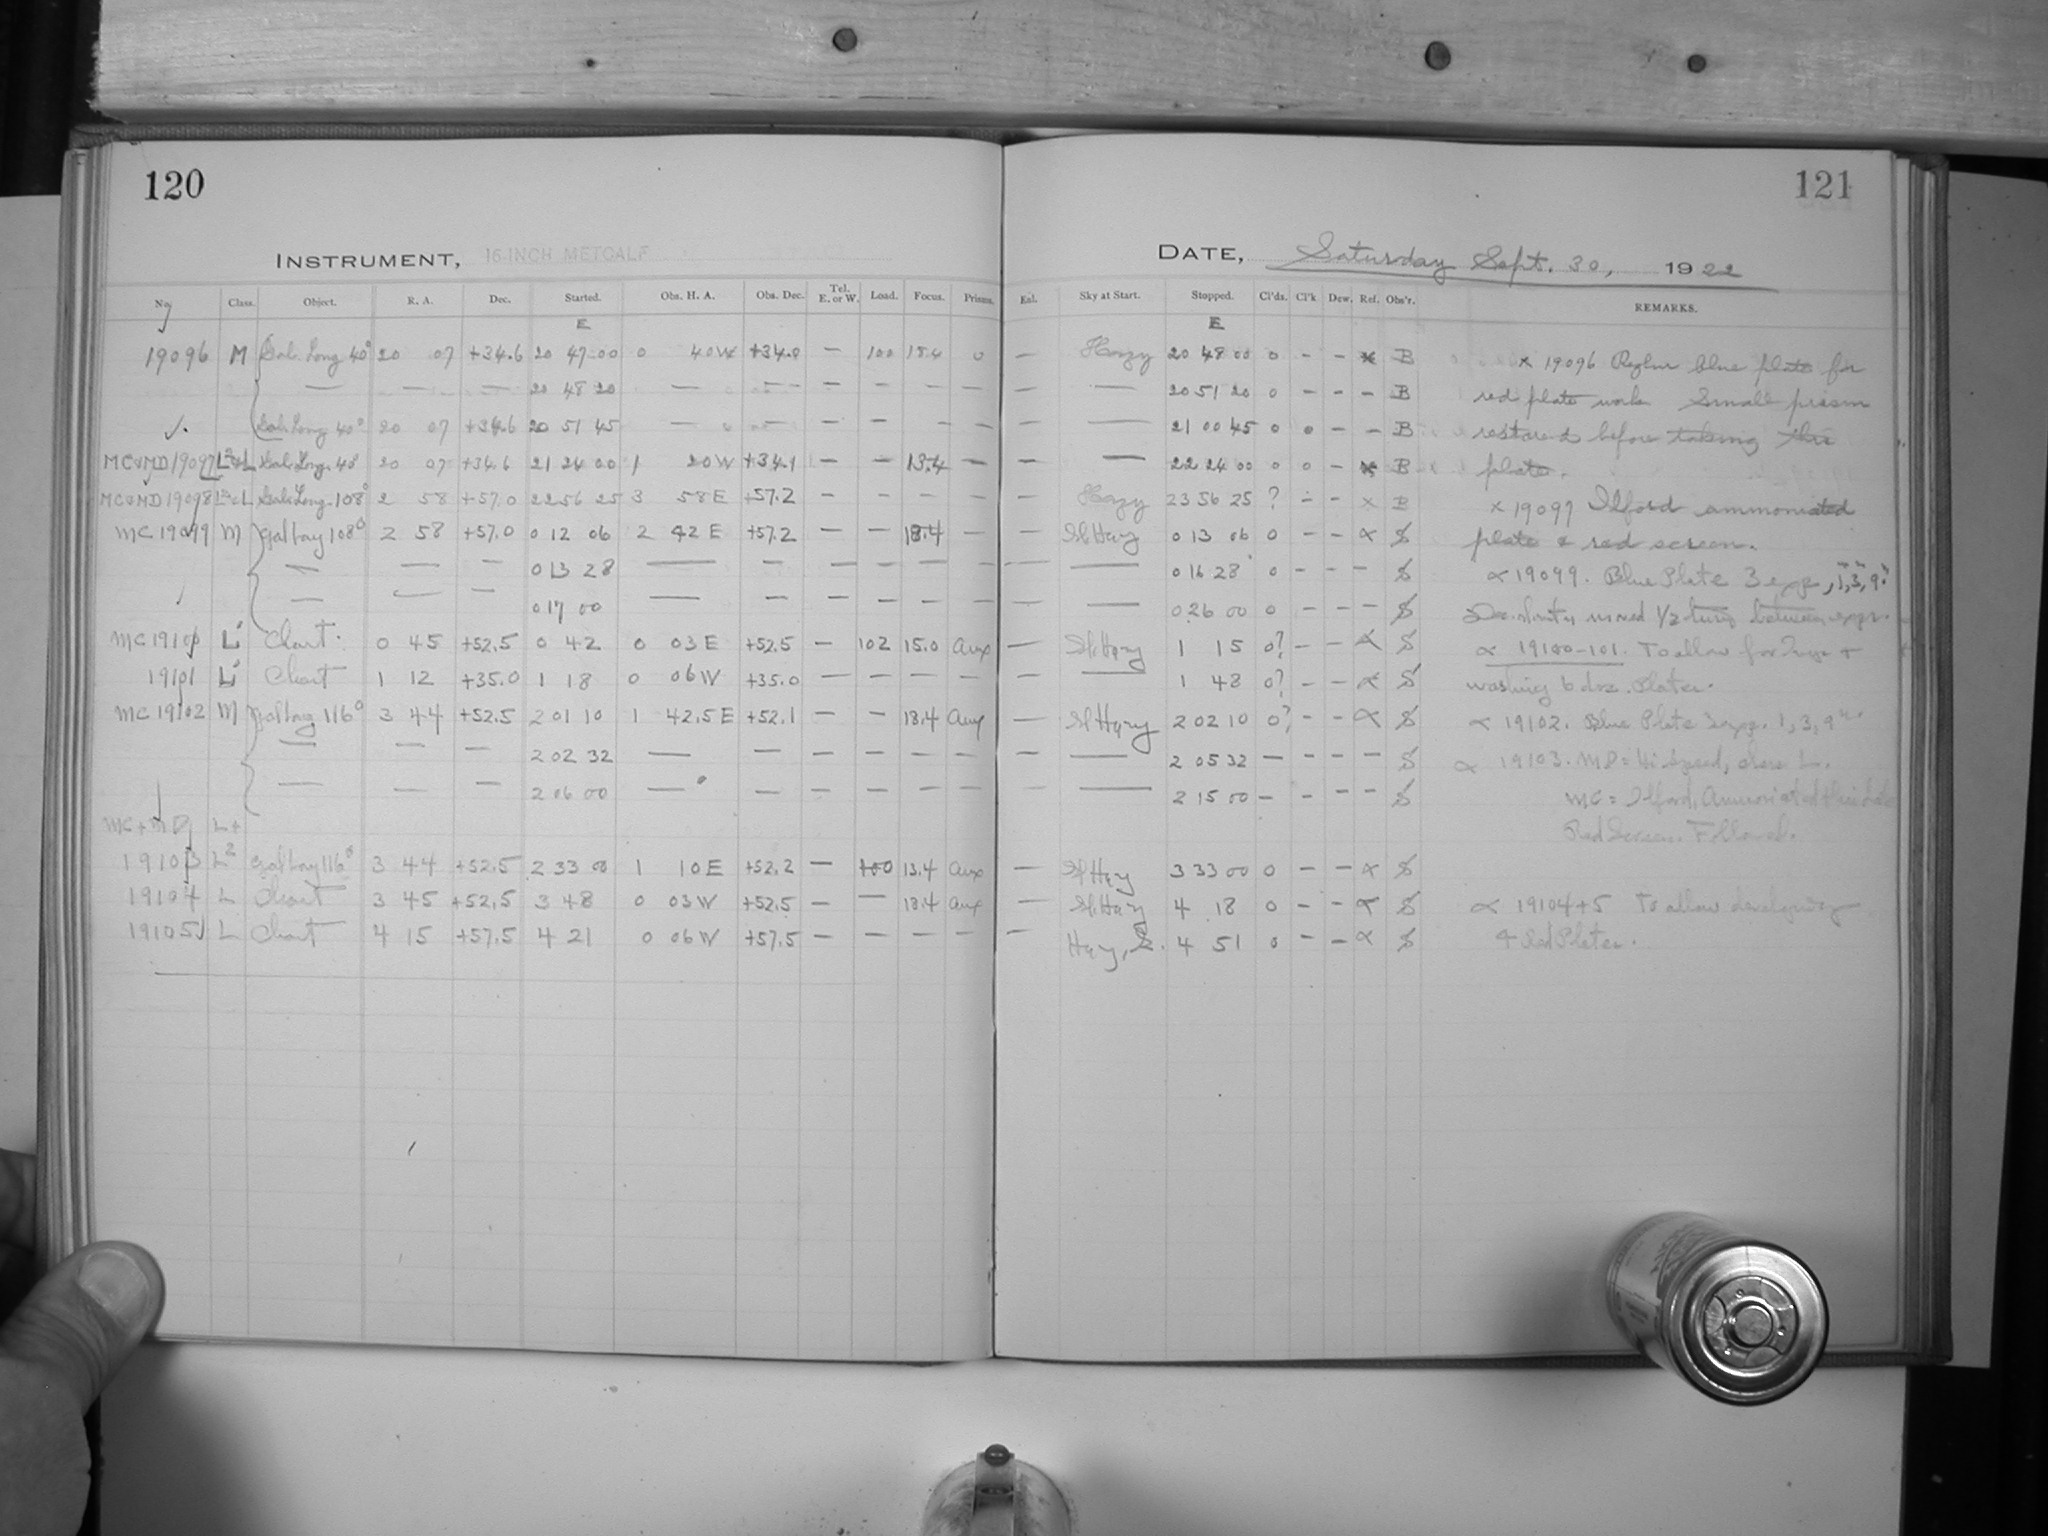 120
121
INSTRUMENT, 16 INCH METCALF
DATE, Saturday Sept. 30, 1922
No. Class. Object. R. A. Dec. Started. Obs. H. A. Obs. Dec. Tel. E. or W. Load. Focus. Prisms. Enl. Sky at Start. Stopped. Cl'ds. Cl'k Dew. Ref. Obs'r. REMARKS.
E E
19096 M Gal. Long 40° 20 07 +34.6 20 47 00 0 40W +34.0 — 100 18.4 0 — Hazy 20 48 00 0 - - x B x 19096 Regular blue plate for
— — — 20 48 20 — — — — — — — — 20 51 20 0 - - - B red plate work Small prism
Gal. Long 40° 20 07 +34.6 20 51 45 — — — — — — — — 21 00 45 0 0 - - B restored before taking this
MC & MD 19097 L²&L Gal. Long. 40° 20 07 +34.6 21 24 00 1 20W +34.1 — — 13.4 — — — 22 24 00 0 0 - x B plate.
MC & MD 19098 L²&L Gal. Long. 108° 2 58 +57.0 22 56 25 3 58E +57.2 — — — — — Hazy 23 56 25 ? - - x B x 19097 Ilford ammoniated
MC 19099 M Gal Long 108° 2 58 +57.0 0 12 06 2 42 E +57.2 — — 18.4 — — Sl Hazy 0 13 06 0 - - α S plate & red screen.
— — — 0 13 28 — — — — — — — — 0 16 28 0 - - - S α 19099. Blue Plate 3 exps, 1, 3, 9ᵐ.
— — — 0 17 00 — — — — — — — — 0 26 00 0 - - - S moved 1/2 turn between exps.
MC 19100 L Chart. 0 45 +52.5 0 42 0 03 E +52.5 — 102 15.0 Aux — Sl. Hazy 1 15 0? - - α S α 19100-101. To allow for +
19101 L Chart 1 12 +35.0 1 18 0 06W +35.0 — — — — — — 1 48 0? - - α S washing 6 doz. Plates.
MC 19102 M Gal Long 116° 3 44 +52.5 2 01 10 1 42.5 E +52.1 — — 18.4 Aux — Sl Hazy 2 02 10 0? - - α S α 19102. Blue Plate 3 exps. 1, 3, 9ᵐ.
— — — 2 02 32 — — — — — — — — 2 05 32 — - - - S α 19103. MD = Hi Speed, class L.
— — — 2 06 00 — — — — — — — — 2 15 00 — - - - S MC = Ilford, Ammoniated
MC + MD L + Red Screen. Followed.
19103 L² Gal Long 116° 3 44 +52.5 2 33 00 1 10 E +52.2 — 100 13.4 Aux — Sl Hazy 3 33 00 0 - - α S
19104 L Chart 3 45 +52.5 3 48 0 03W +52.5 — — 18.4 Aux — Sl. Hazy 4 18 0 - - α S α 19104+5 To allow developing
19105 L Chart 4 15 +57.5 4 21 0 06W +57.5 — — — — — Hazy, 4 51 0 - - α S 4 Red Plates.